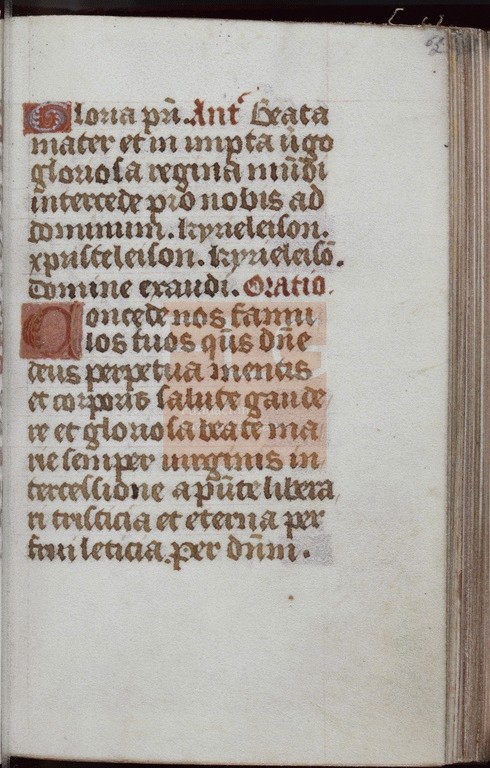 Gloria pri. Ant̃ Beata
mater et in nupta ũgo
gloriosa regina mũdi
intercede pro nobis ad
dominum. kyrieleison.
xpristeleison. kyrieleisõ.
Domine exaudi. Oratio.
Concede nos famu
los tuos q̃s dñe
deus perpetua mentis
et corporis salute gaude
re et gloriosa beate ma
rie semper virginis in
tercessione a p̃ñte libera
ri tristicia et eterna per
frui leticia. per dñm.